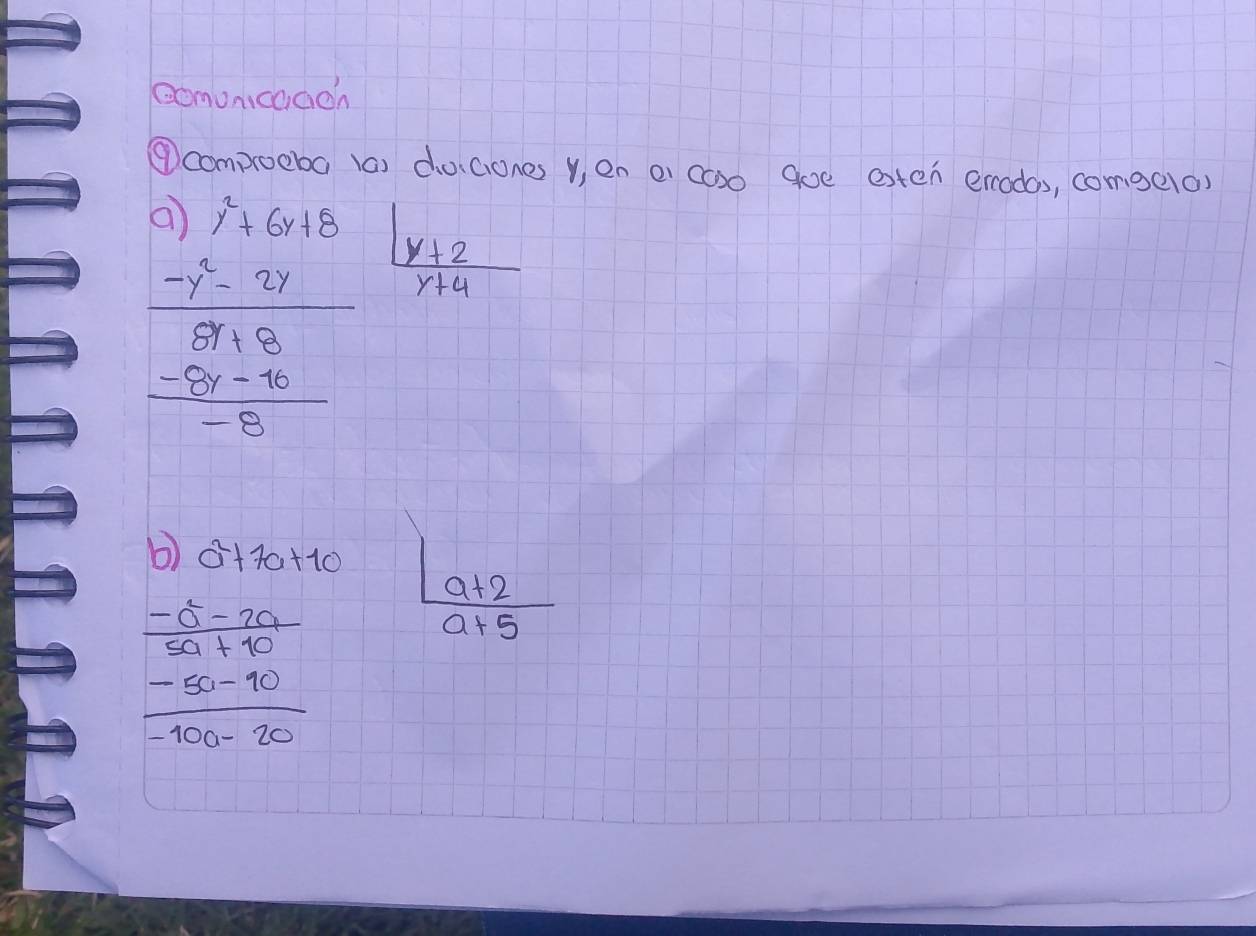 comunicación
9 comprueba las divisiones y, en el caso que estén erradas, corrigelas
a) y² + 6y + 8 | y + 2
-y² - 2y y + 4
8y + 8
-8y - 16
-8
b) a² + 7a + 10 | a + 2
-a² - 2a a + 5
5a + 10
-5a - 10
-10a - 20